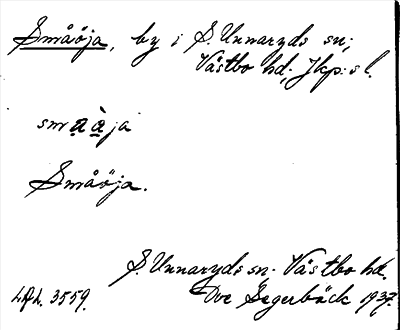 Småöja, by i S. Unnaryds sn;
Västbo hd; Jkp:s l.
smạạ̀ja
Småöja.
S. Unnaryds sn. Västbo hd.
LAL. 3559. Ove Segerbäck 1937.